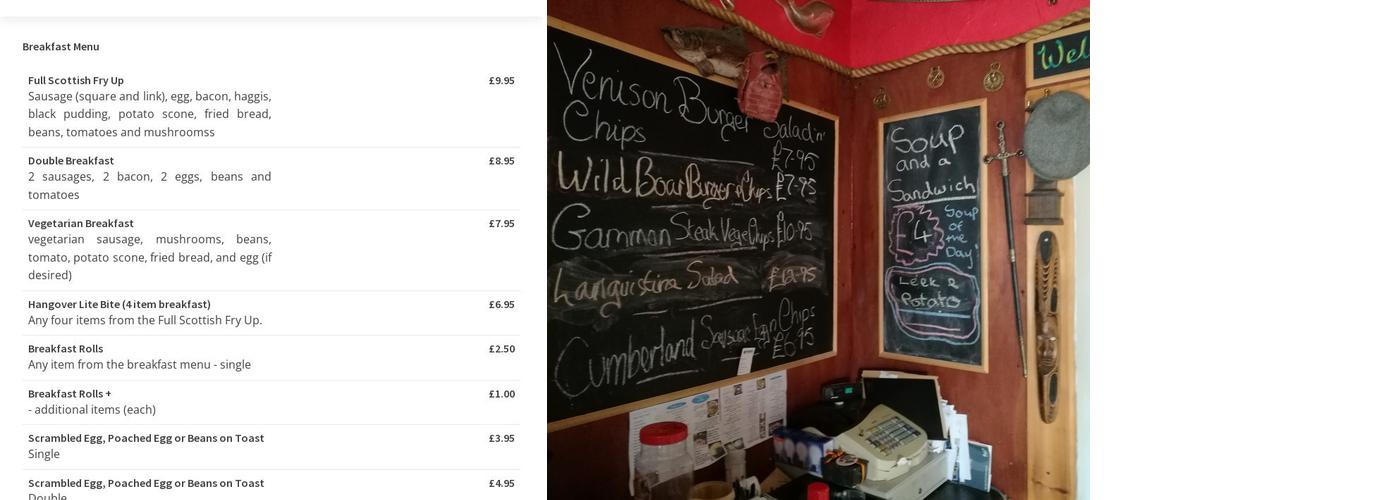 Breakfast Menu
Full Scottish Fry Up £9.95
Sausage (square and link), egg, bacon, haggis,
black pudding, potato scone, fried bread,
beans, tomatoes and mushroomss
Double Breakfast £8.95
2 sausages, 2 bacon, 2 eggs, beans and
tomatoes
Vegetarian Breakfast £7.95
vegetarian sausage, mushrooms, beans,
tomato, potato scone, fried bread, and egg (if
desired)
Hangover Lite Bite (4 item breakfast) £6.95
Any four items from the Full Scottish Fry Up.
Breakfast Rolls £2.50
Any item from the breakfast menu - single
Breakfast Rolls + £1.00
- additional items (each)
Scrambled Egg, Poached Egg or Beans on Toast £3.95
Single
Scrambled Egg, Poached Egg or Beans on Toast £4.95
Double
Venison Burger Salad 'n'
Chips £7-95
Wild Boar Burger & Chips £7-95
Gammon Steak Vege Chips £10-95
Languistine Salad £12-95
Cumberland Sausage Egg n Chips
£6-95
Soup
and a
Sandwich
£4
Soup
of
the
Day
Leek &
Potato
Wel